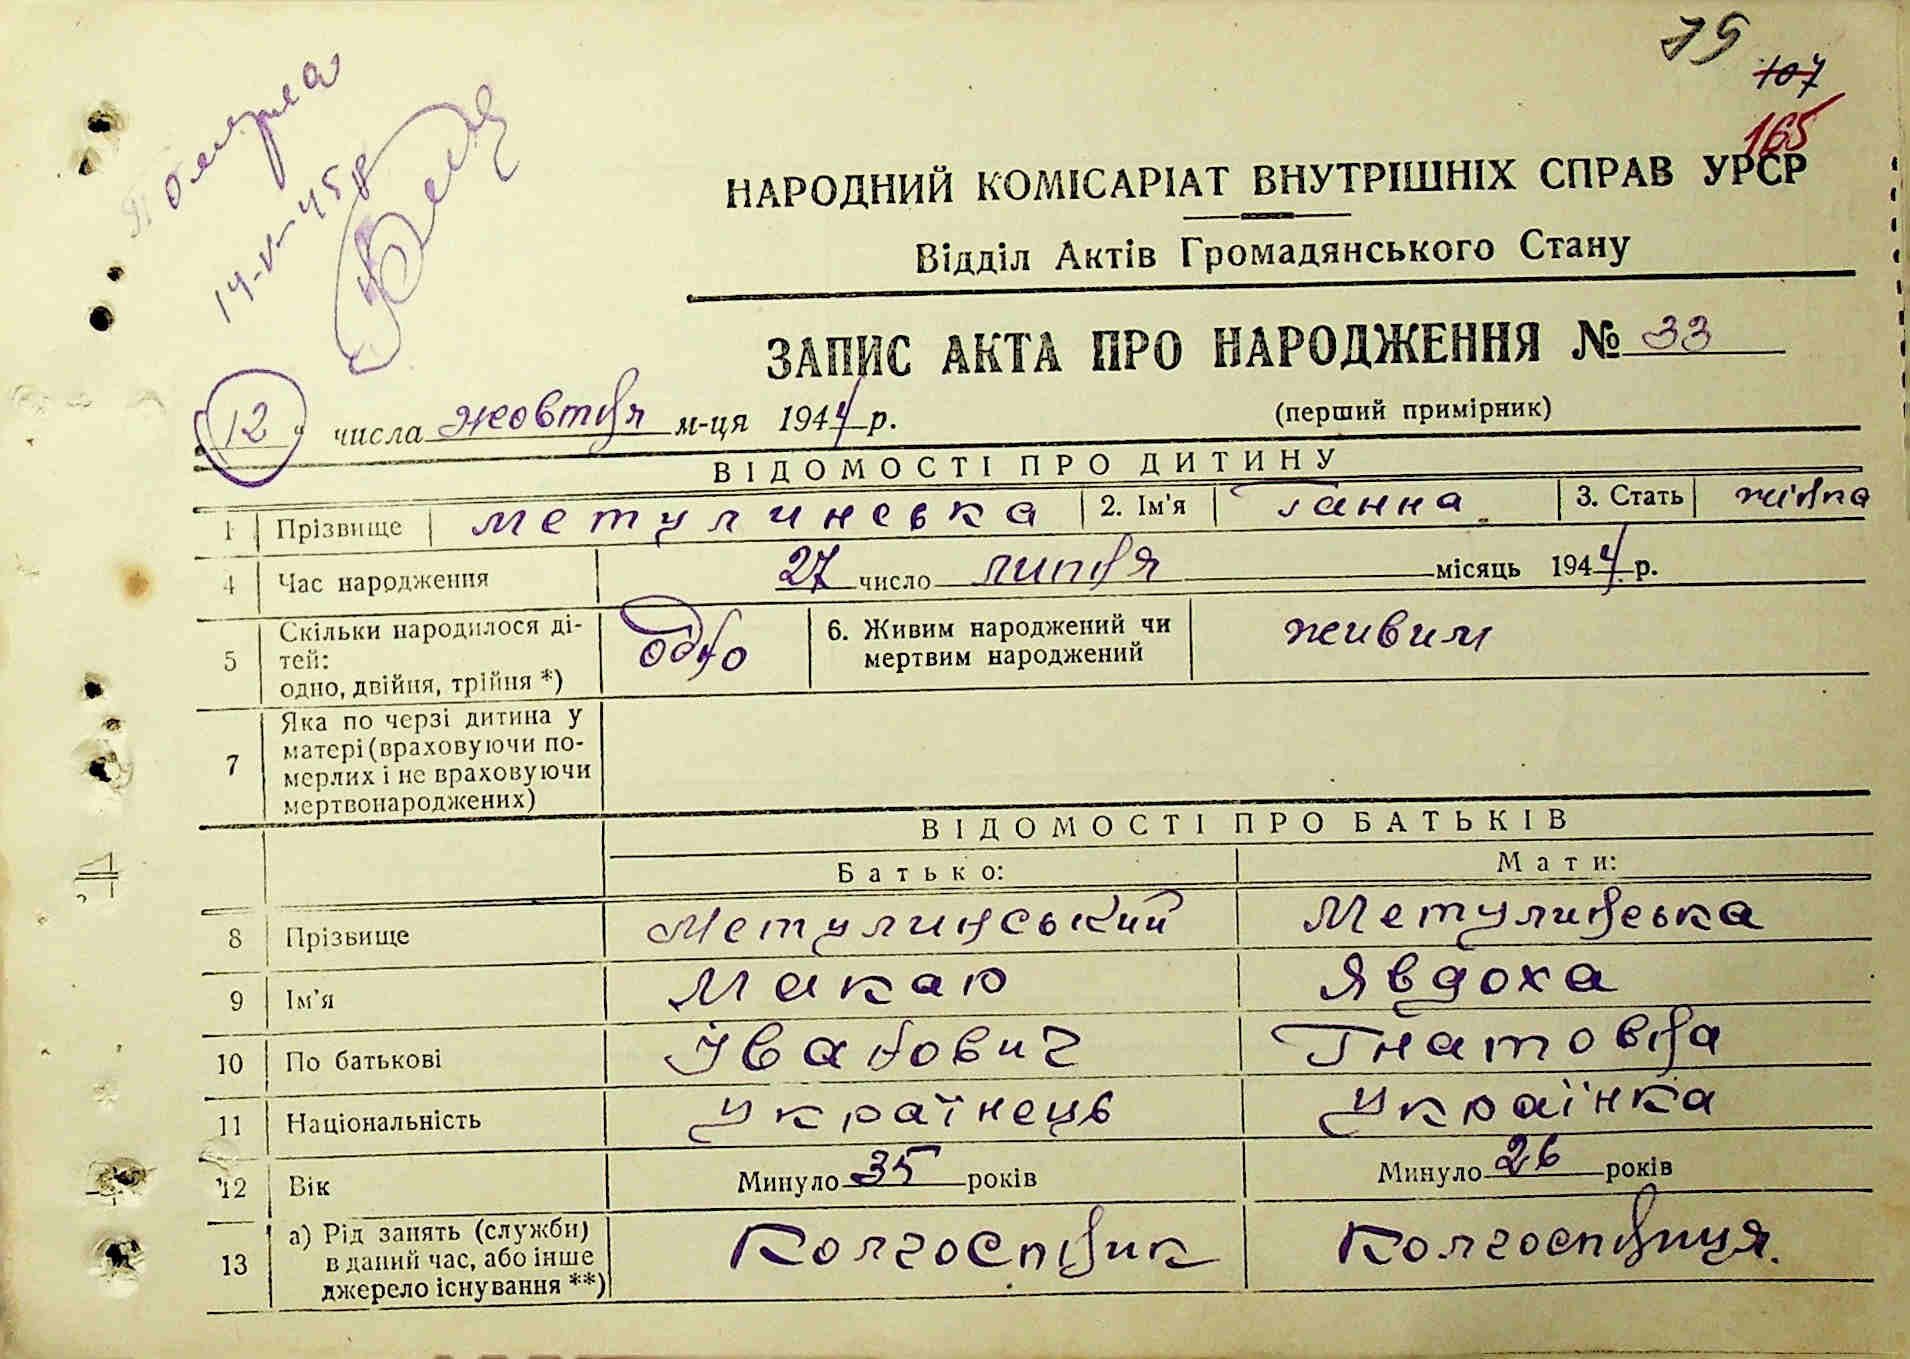 75
107
165
Померла
14-V-1945 р
НАРОДНИЙ КОМІСАРІАТ ВНУТРІШНІХ СПРАВ УРСР
Відділ Актів Громадянського Стану
ЗАПИС АКТА ПРО НАРОДЖЕННЯ № 33
„12“ числа жовтня м-ця 1944 р.
(перший примірник)
ВІДОМОСТІ ПРО ДИТИНУ
1 Прізвище Метулинська 2. Ім'я Ганна 3. Стать жіноча
4 Час народження 27 число липня місяць 1944 р.
5 Скільки народилося ді-
тей:
одно, двійня, трійня *) одно
6. Живим народжений чи
мертвим народжений живим
7 Яка по черзі дитина у
матері (враховуючи по-
мерлих і не враховуючи
мертвонароджених)
ВІДОМОСТІ ПРО БАТЬКІВ
Батько: Мати:
8 Прізвище Метулинський Метулинська
9 Ім'я Макар Явдоха
10 По батькові Іванович Гнатовна
11 Національність Українець Українка
12 Вік Минуло 35 років Минуло 26 років
13 а) Рід занять (служби)
в даний час, або інше
джерело існування **) Колгоспник Колгоспниця.